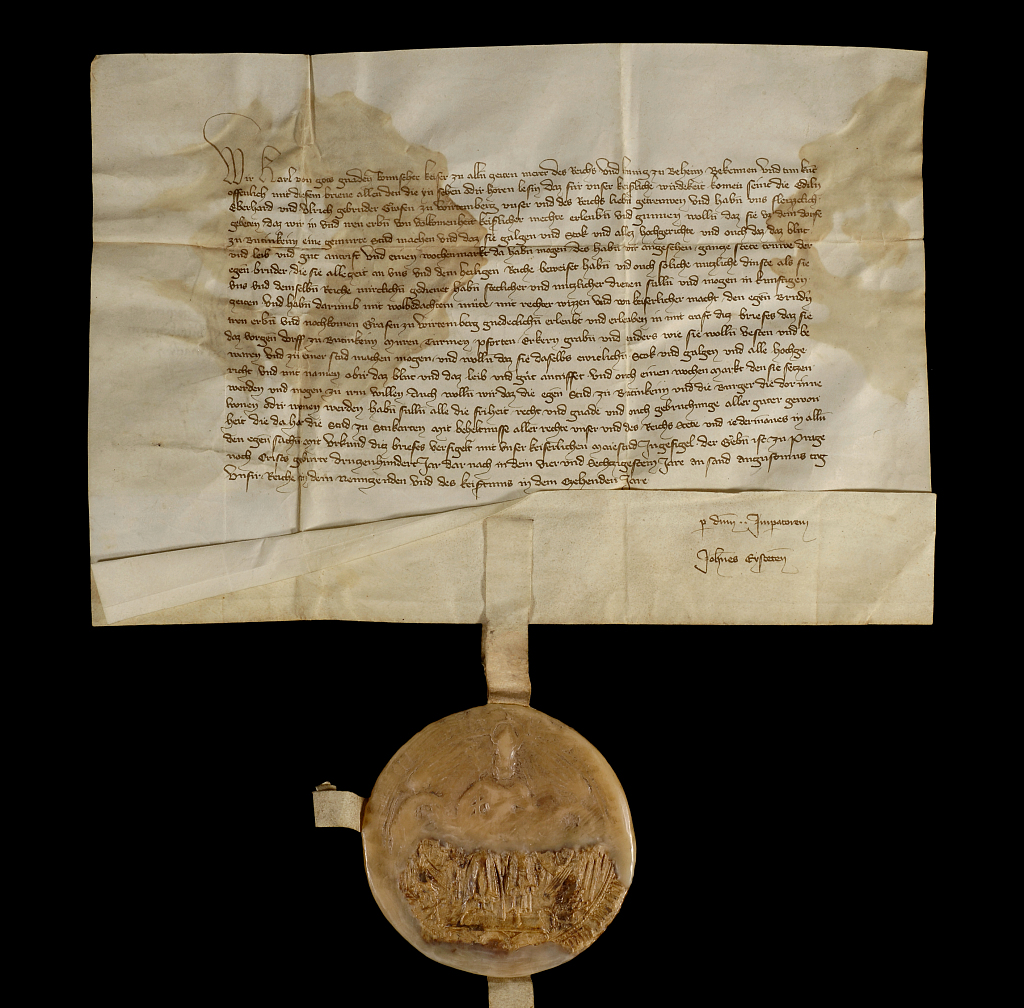 Wir Karl von gots gnaden Romischer keiser zu alln zeiten merer des Reichs und kunig zu Beheim Bekennen und tun kunt
offenlich mit diesem brieue allen den die yn sehen odir horen lesin daz fur unser keiserliche wirdekeit komen seint die Edeln
Eberhard und Ulrich gebruder Grafen zu Wirtemberg unser und des Reichs liebn getrewen und habn uns fleizzclich
gebeten daz wir in und iren erbn von volkomenheit keiserlicher mechte erleubn und gunnen wolln daz sie uz dem dorfe
zu Butinkein eine gemurte Stad machen und daz sie galgen und Stok und allez hochgerichte und ouch daz daz blut
und leib und gut antrift und einen wochenmarkt da habn mogen des habn wir angesehen gancze stete truwe der
egen bruder die sie allezeit an uns und dem heiligen Riche beweiset habn und ouch soliche nuczliche dinste als sie
uns und demselbn Riche mircklichn gedienet habn stetlicher und nuczlicher dienen sulln und mogen in kunftigen
zeiten und habn darumb mit wolbedachtem mute mit rechter wizzen und von keiserlicher macht den egen Brudn
iren erbn und nachkomen Grafen zu Wirtemberg gnedeclichn erleubt und erleuben in mit craft dicz brieses daz sie
daz vorgen dorff zu Butinkein Muren Turnen Pforten Erkern grabn und anders wie sie wolln vesten und be
waren und zu einer stad machen mogen und wolln daz sie daselbs ewiclichn Stok und galgen und alle hochge
richt und mit namen obir daz blut und daz leib und gut antriffet und ouch einen wochen Markt den sie seczen
werden und mogen zu irm willen Auch wolln wir daz die egen Stad zu Butinkein und die Burger die dor inne
wonen odir wonen werden habn sulln alle die friheit recht und gnade und ouch gebruchunge aller guter gewon
heit die da hat die Stad zu Stukarten Mit beheltnisse aller rechte unser und des Reichs Stete und iedermanes in alln
den egen sachn Mit urkund dicz brieses versigelt mit unser keiserlichen Maiestad Ingesigel der Gebn ist zu Prage
nach Crists geburte druczenhundert Jar dar nach in dem vier und Sechczigestem Jare an sand Augustinus tag
unsir Reiche in dem Neunzenden und des keisertums in dem Czehenden Jare
p dnm . . Imperatorem
Johnes Eysteten